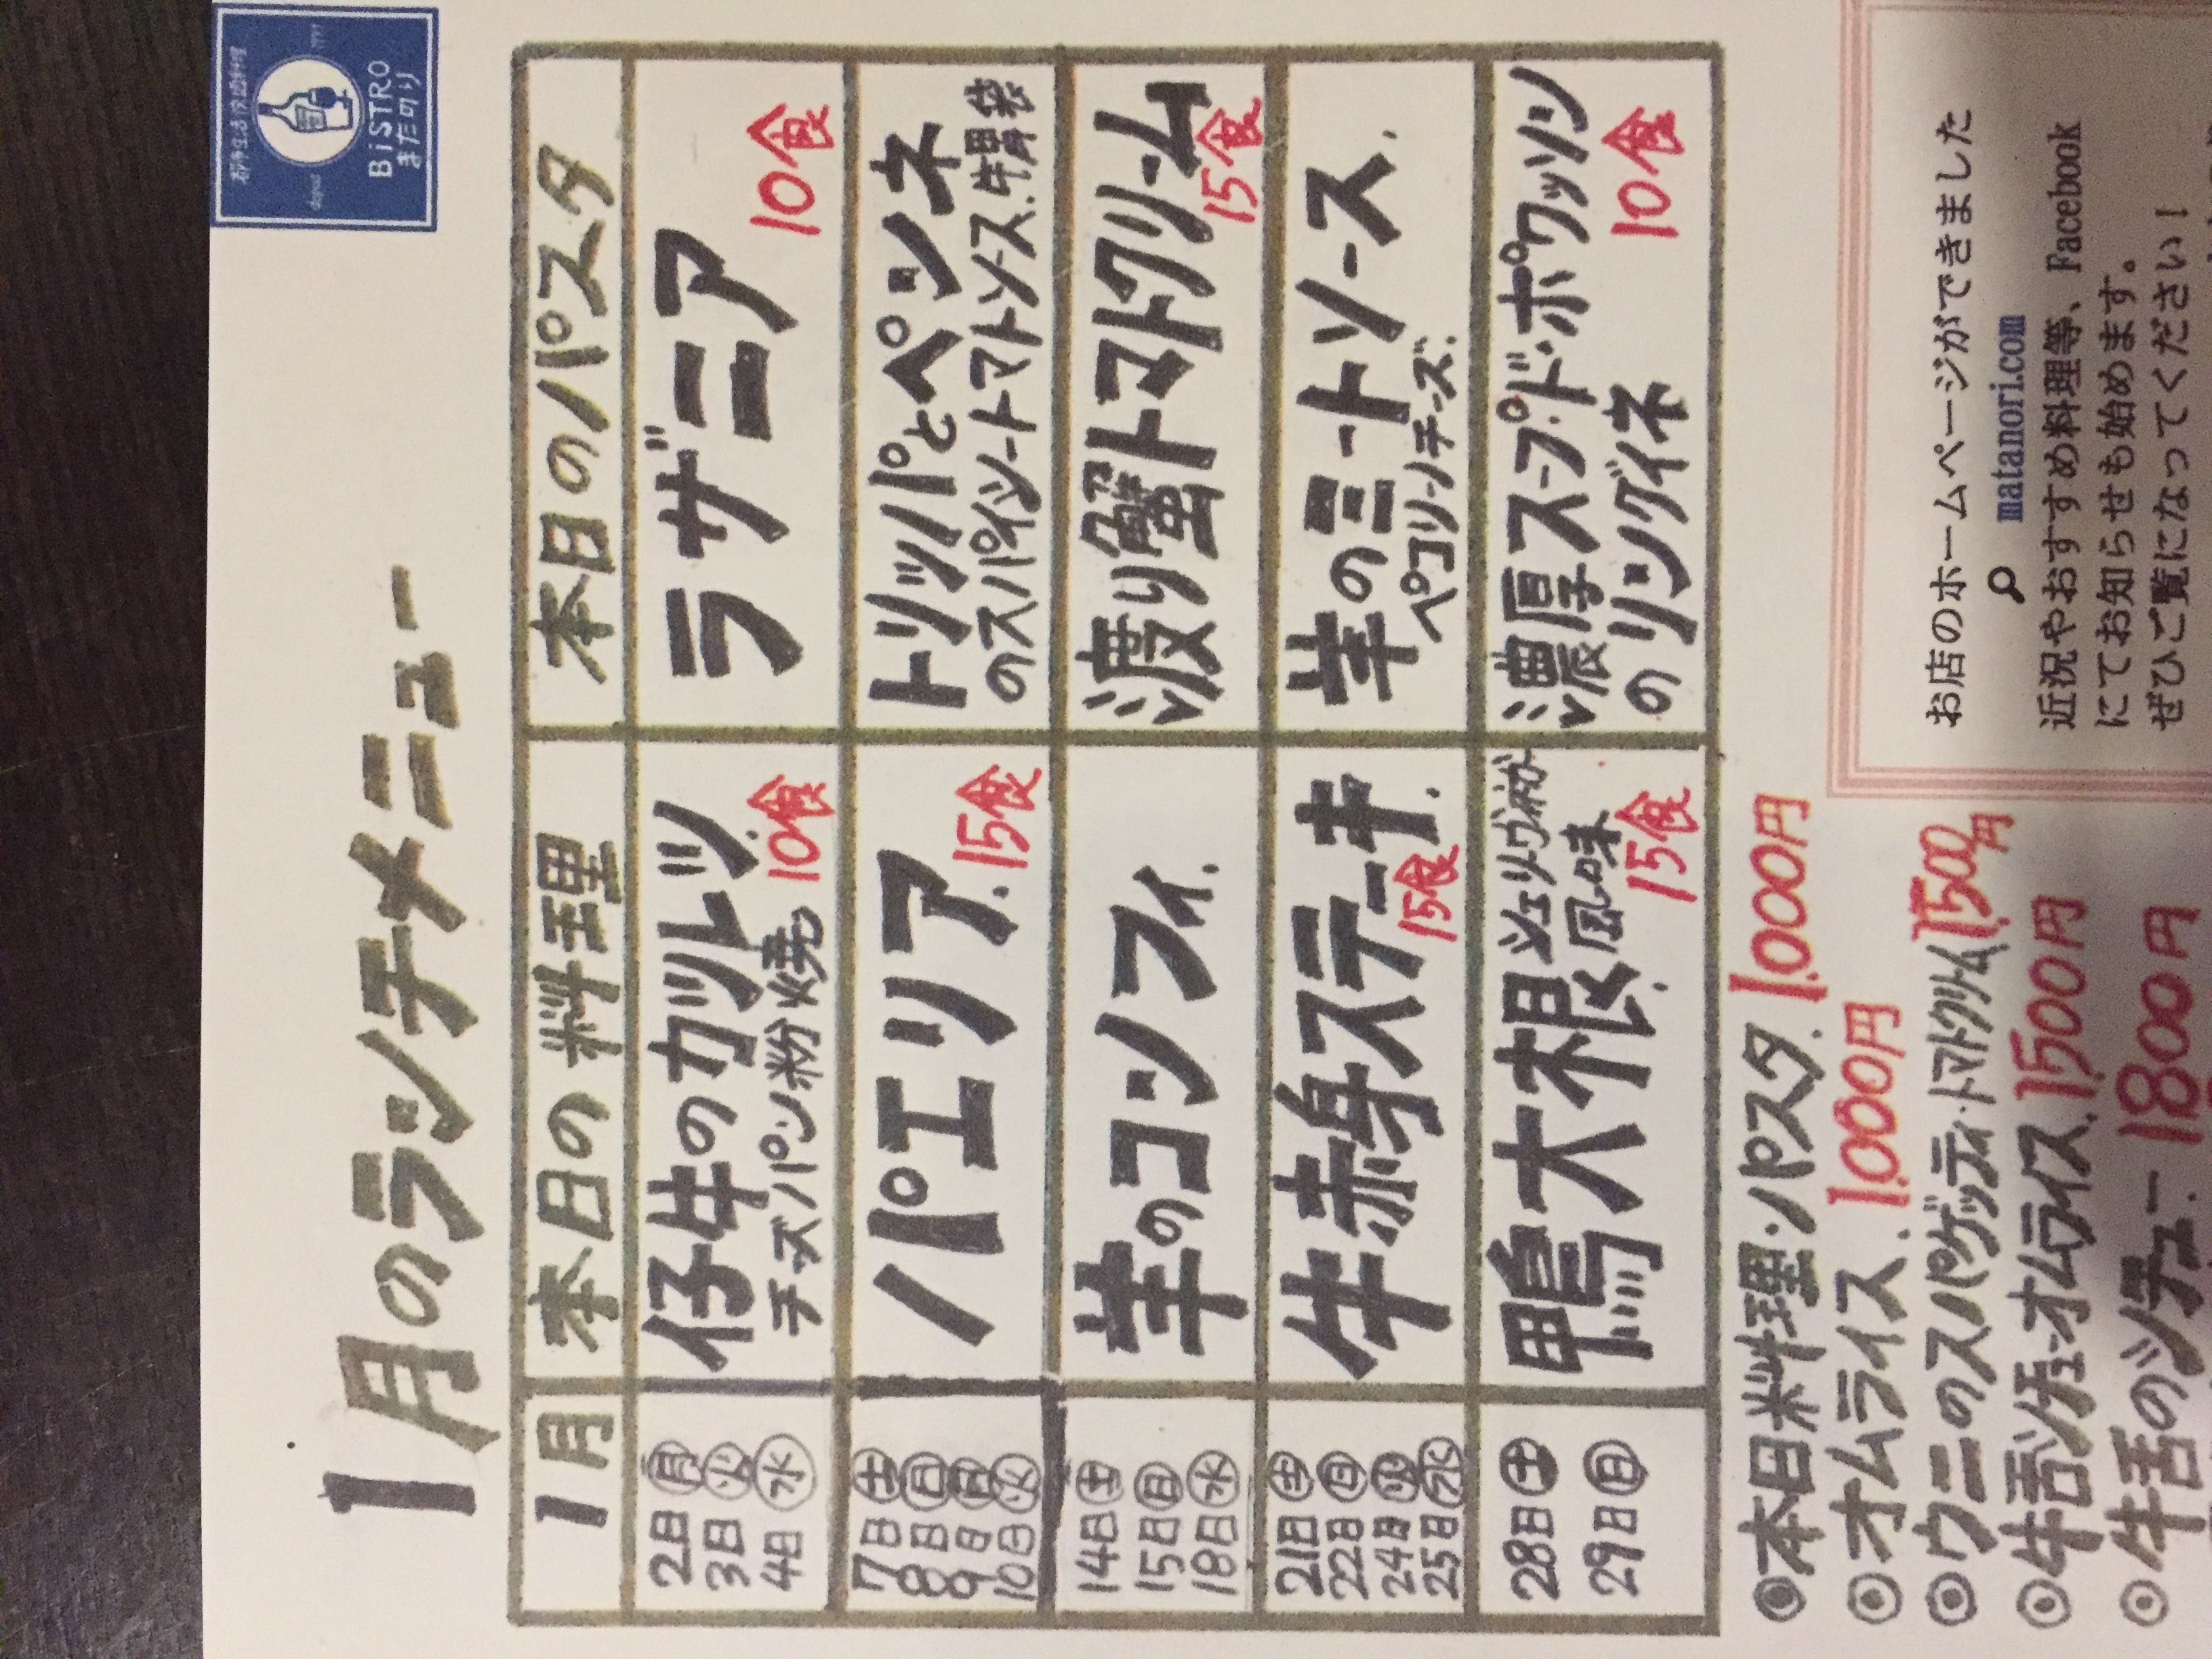 BiSTRO
またのり
1月のランチメニュー
1月 本日の料理 本日のパスタ
2日㊊
3日㊋
4日㊌
仔牛のカツレツ
チーズパン粉焼 10食
ラザニア
10食
7日㊏
8日㊐
9日㊊
10日㊋
パエリア.
15食
トリッパとペンネ
のスパイシートマトソース.牛胃袋
14日㊏
15日㊐
18日㊌
羊のコンフィ.
渡り蟹トマトクリーム
15食
21日㊏
22日㊐
24日㊋
25日㊌
牛赤身ステーキ.
15食
羊のミートソース.
ペコリーノチーズ.
28日㊏
29日㊐
鴨大根
風味
15食
濃厚スープ・ド・ポワッソン
のリングイネ
10食
◉本日料理・パスタ. 1.000円
◎オムライス. 1.000円
◎ウニのスパゲッティ・トマトクリーム 1500円
◎牛舌シチューオムライス. 1500円
◎牛舌のシチュー. 1800円
お店のホームページができました
matanori.com
近況やおすすめ料理等、Facebook
にてお知らせも始めます。
ぜひご覧になってください！